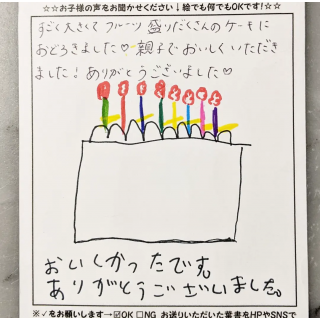 ☆☆お子様の声をお聞かせください↓絵でも何でもOKです!☆☆
すごく大きくて フルーツ 盛りだくさんのケーキに
おどろきました♡ 親子でおいしくいただき
ました!ありがとうございました♡
おいしかったです。
ありがとうございました。
※✓をお願いします→☑OK ☐NG お送りいただいた葉書をHPやSNSで